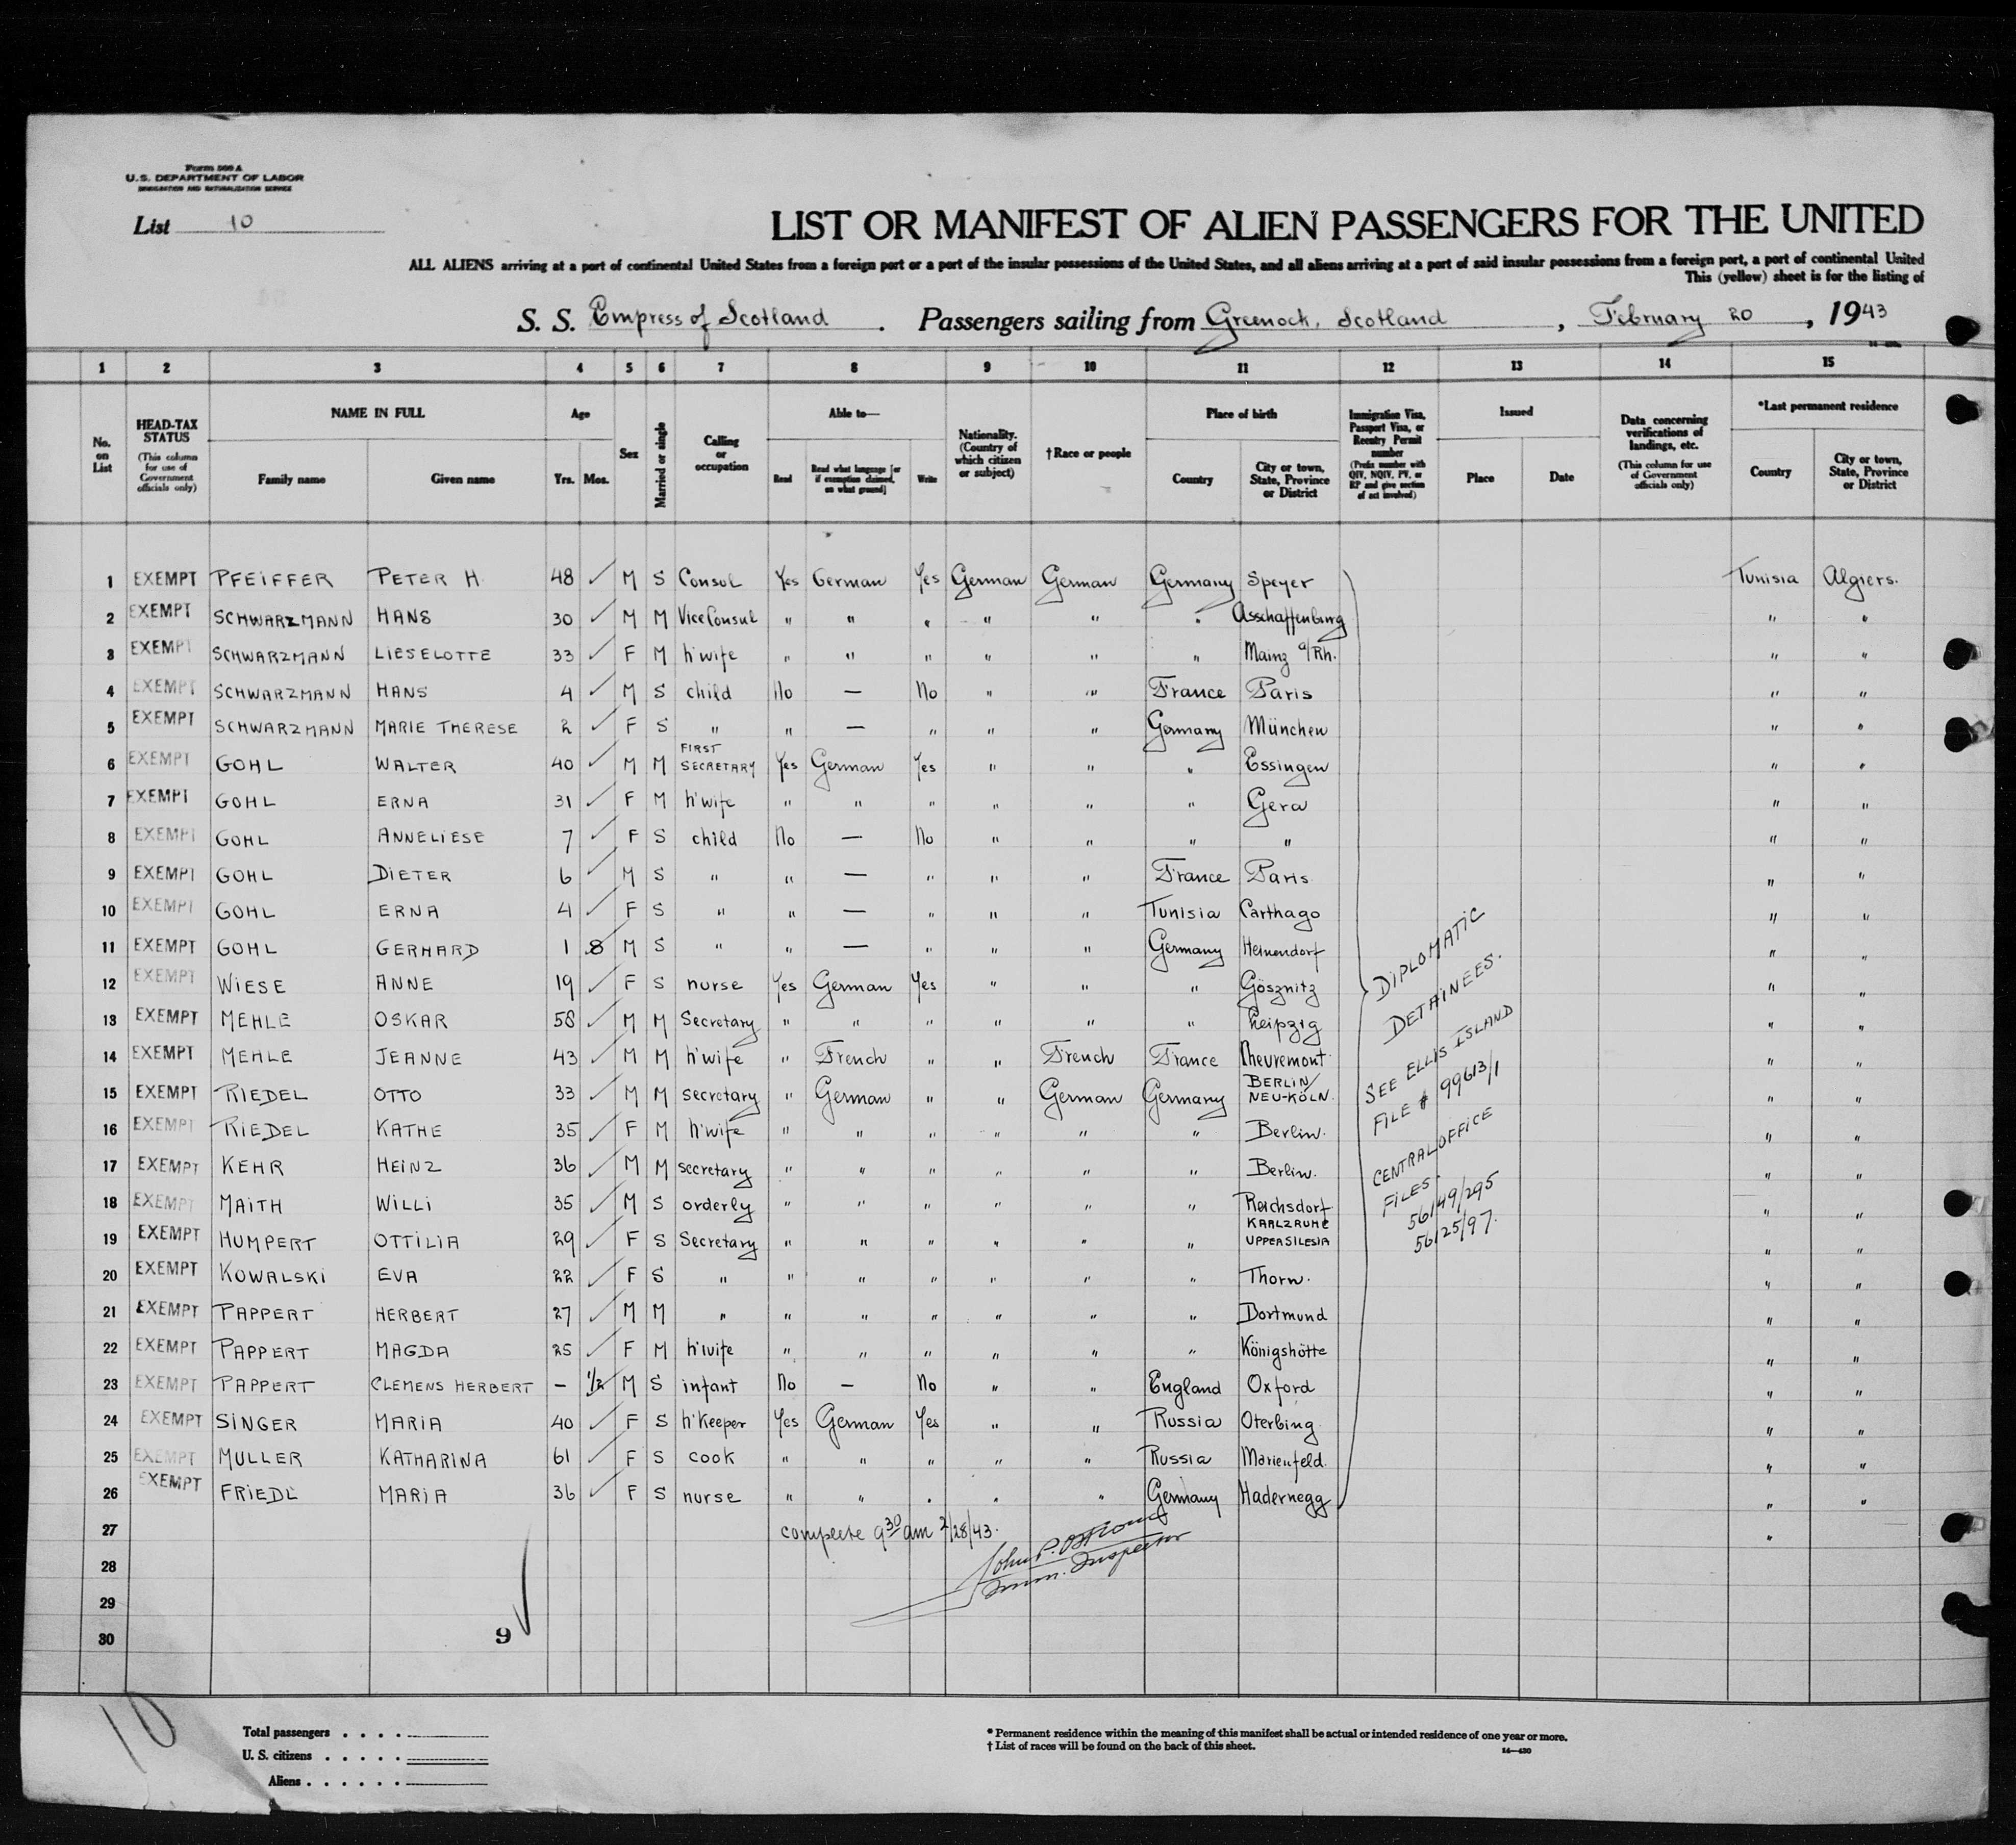 Form 500 A
U.S. DEPARTMENT OF LABOR
IMMIGRATION AND NATURALIZATION SERVICE
List 10
LIST OR MANIFEST OF ALIEN PASSENGERS FOR THE UNITED
ALL ALIENS arriving at a port of continental United States from a foreign port or a port of the insular possessions of the United States, and all aliens arriving at a port of said insular possessions from a foreign port, a port of continental United
This (yellow) sheet is for the listing of
S. S. Empress of Scotland. Passengers sailing from Greenock, Scotland, February 20, 1943
1 2 3 4 5 6 7 8 9 10 11 12 13 14 15
No. on List
HEAD-TAX STATUS (This column for use of Government officials only)
NAME IN FULL Family name Given name
Age Yrs. Mos.
Sex
Married or single
Calling or occupation
Able to— Read Read what language [or if exemption claimed, on what ground] Write
Nationality. (Country of which citizen or subject)
†Race or people
Place of birth Country City or town, State, Province or District
Immigration Visa, Passport Visa, or Reentry Permit number (Prefix number with QIV, NQIV, PV, or RP and give section of act involved)
Issued Place Date
Data concerning verifications of landings, etc. (This column for use of Government officials only)
*Last permanent residence Country City or town, State, Province or District
1 EXEMPT PFEIFFER PETER H. 48 ✓ M S Consul Yes German Yes German German Germany Speyer Tunisia Algiers.
2 EXEMPT SCHWARZMANN HANS 30 ✓ M M Vice Consul " " " " " " Asschaffenburg " "
3 EXEMPT SCHWARZMANN LIESELOTTE 33 ✓ F M h'wife " " " " " " Mainz a/Rh. " "
4 EXEMPT SCHWARZMANN HANS 4 ✓ M S child No — No " " France Paris " "
5 EXEMPT SCHWARZMANN MARIE THERESE 2 ✓ F S " " — " " " Germany München " "
6 EXEMPT GOHL WALTER 40 ✓ M M FIRST SECRETARY Yes German Yes " " " Essingen " "
7 EXEMPT GOHL ERNA 31 ✓ F M h'wife " " " " " " Gera " "
8 EXEMPT GOHL ANNELIESE 7 ✓ F S child No — No " " " " " "
9 EXEMPT GOHL DIETER 6 ✓ M S " " — " " " France Paris " "
10 EXEMPT GOHL ERNA 4 ✓ F S " " — " " " Tunisia Carthago " "
11 EXEMPT GOHL GERHARD 1 8 M S " " — " " " Germany " "
12 EXEMPT WIESE ANNE 19 ✓ F S nurse Yes German Yes " " " Gösznitz " "
13 EXEMPT MEHLE OSKAR 58 ✓ M M Secretary " " " " " " Leipzig " "
14 EXEMPT MEHLE JEANNE 43 ✓ M M h'wife " French " " French France " "
15 EXEMPT RIEDEL OTTO 33 ✓ M M secretary " German " " German Germany BERLIN/ NEU-KÖLN. " "
16 EXEMPT RIEDEL KATHE 35 ✓ F M h'wife " " " " " " Berlin. " "
17 EXEMPT KEHR HEINZ 36 ✓ M M secretary " " " " " " Berlin. " "
18 EXEMPT MAITH WILLI 35 ✓ M S orderly " " " " " " Reichsdorf " "
19 EXEMPT HUMPERT OTTILIA 29 ✓ F S Secretary " " " " " " KARLZRUHE UPPER SILESIA " "
20 EXEMPT KOWALSKI EVA 22 ✓ F S " " " " " " " Thorn. " "
21 EXEMPT PAPPERT HERBERT 27 ✓ M M " " " " " " " Dortmund " "
22 EXEMPT PAPPERT MAGDA 25 ✓ F M h'wife " " " " " " Königshötte " "
23 EXEMPT PAPPERT CLEMENS HERBERT – 1/2 M S infant No — No " " England Oxford " "
24 EXEMPT SINGER MARIA 40 ✓ F S h'keeper Yes German Yes " " Russia Oterbing " "
25 EXEMPT MULLER KATHARINA 61 ✓ F S cook " " " " " Russia Marienfeld. " "
26 EXEMPT FRIEDL MARIA 36 ✓ F S nurse " " " " " Germany Hadernegg " "
27 complete 9 30 am 2/28/43. "
28
29
30
DIPLOMATIC
DETAINEES.
SEE ELLIS ISLAND
FILE # 99613/1
CENTRAL OFFICE
FILES.
56149/295
56125/97.
John P.
Imm. Inspector
9 ✓
10
Total passengers
U. S. citizens
Aliens
* Permanent residence within the meaning of this manifest shall be actual or intended residence of one year or more.
† List of races will be found on the back of this sheet.
14—430